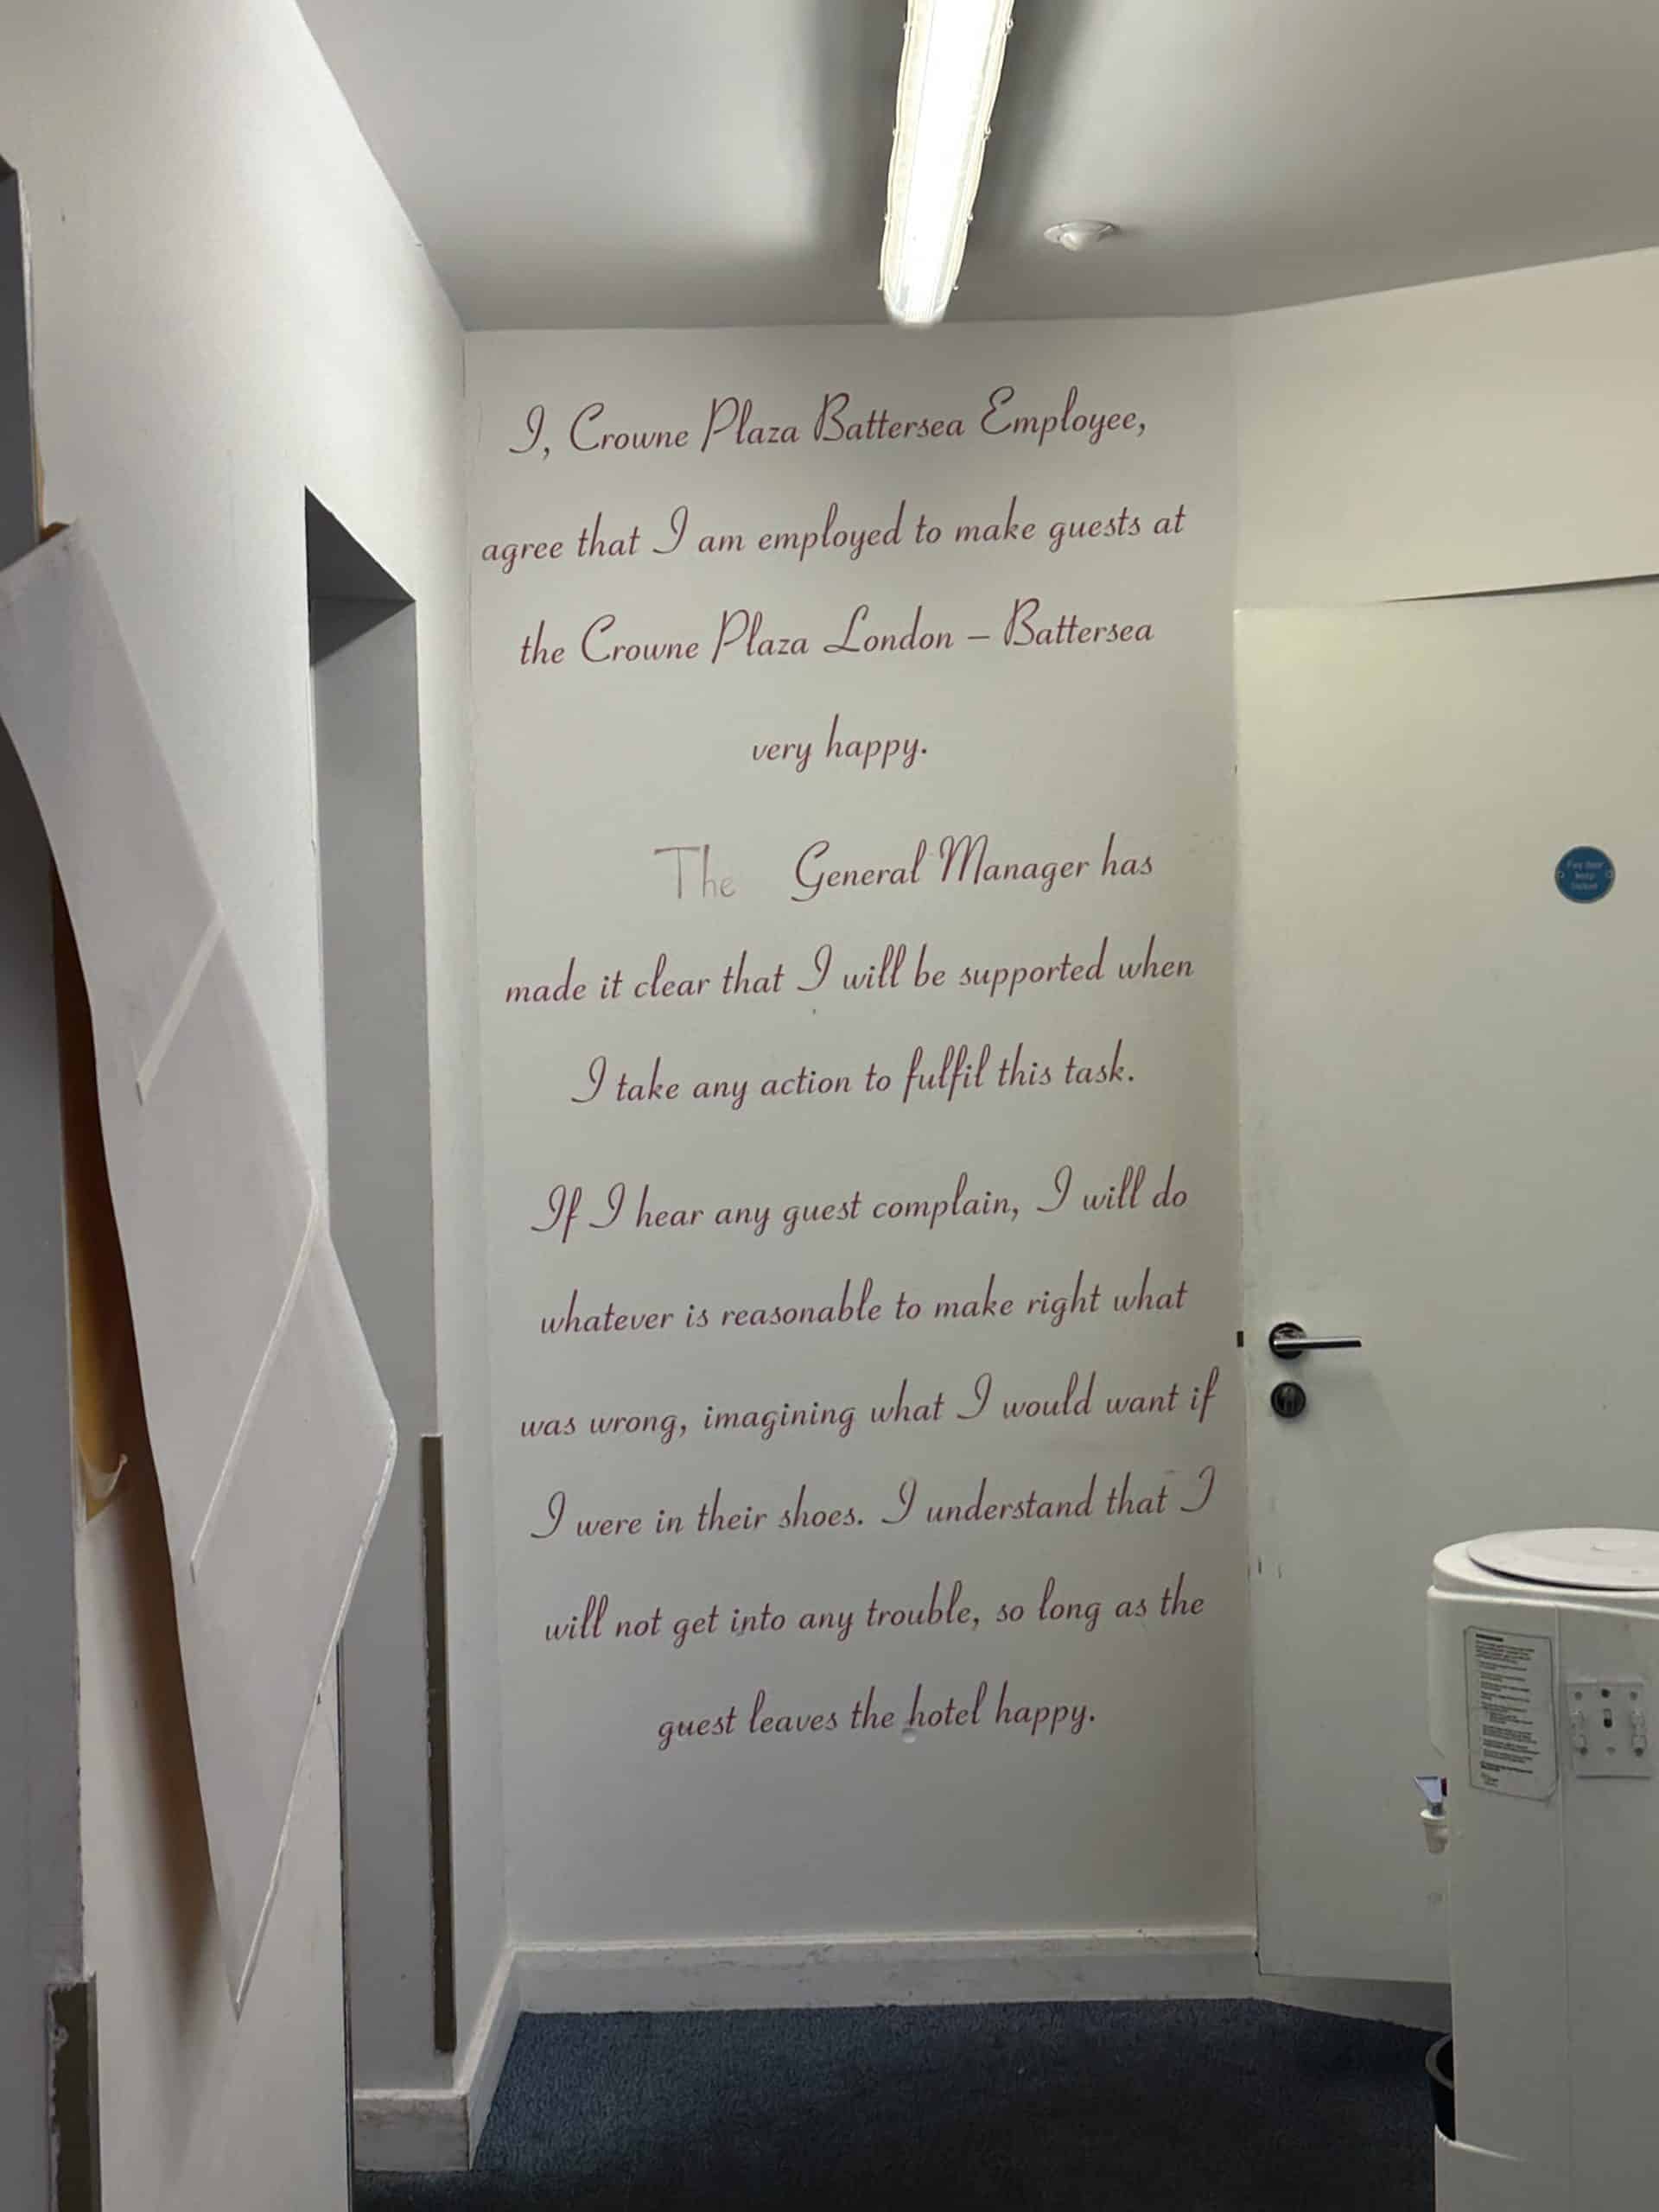 I, Crowne Plaza Battersea Employee,
agree that I am employed to make guests at
the Crowne Plaza London – Battersea
very happy.
The General Manager has
made it clear that I will be supported when
I take any action to fulfil this task.
If I hear any guest complain, I will do
whatever is reasonable to make right what
was wrong, imagining what I would want if
I were in their shoes. I understand that I
will not get into any trouble, so long as the
guest leaves the hotel happy.
Fire door
keep
locked